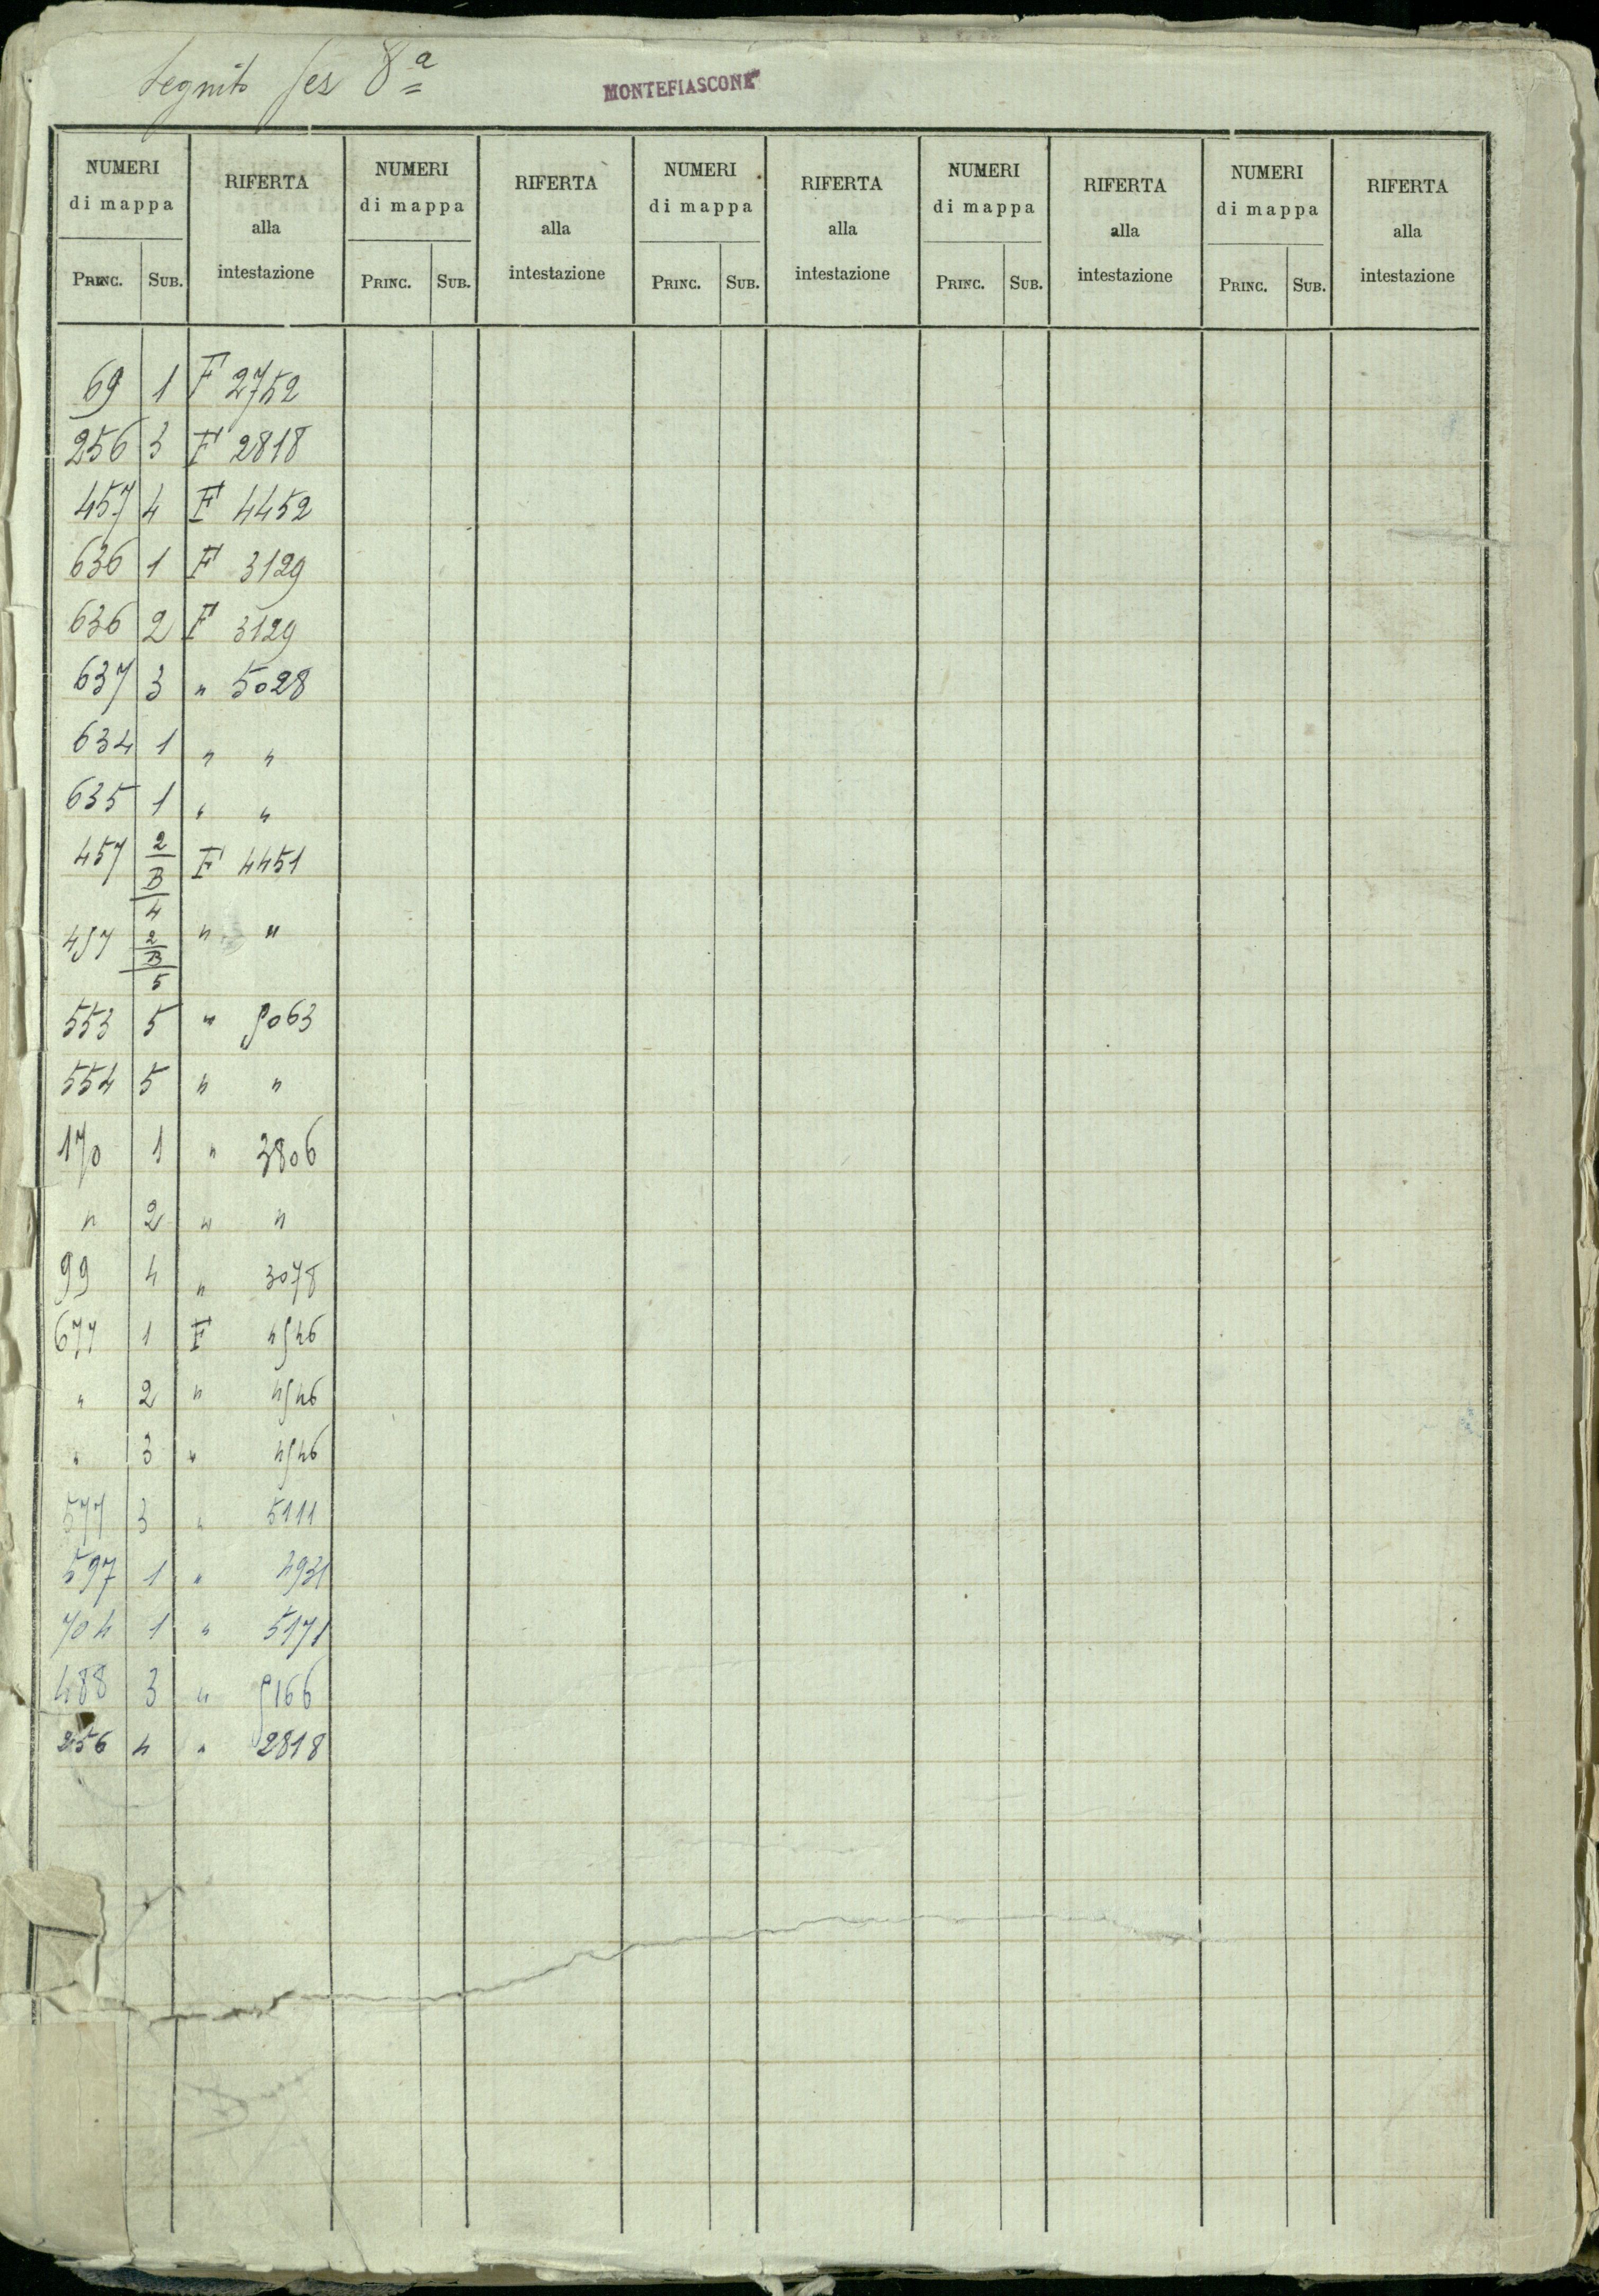 Seguito Sez 8ª
MONTEFIASCONE
NUMERI di mappa RIFERTA alla intestazione NUMERI di mappa RIFERTA alla intestazione NUMERI di mappa RIFERTA alla intestazione NUMERI di mappa RIFERTA alla intestazione NUMERI di mappa RIFERTA alla intestazione
PRINC. SUB. PRINC. SUB. PRINC. SUB. PRINC. SUB. PRINC. SUB.
69 1 F 2752
256 3 F 2818
457 4 F 4452
636 1 F 3129
636 2 F 3129
637 3 " 5028
634 1 " "
635 1 " "
457 2/B/4 F 4451
457 2/B/5 " "
553 5 " 5063
554 5 " "
170 1 " 3806
" 2 " "
99 4 " 3078
677 1 F 4546
" 2 " 4546
" 3 " 4546
577 3 " 5111
597 1 " 4931
704 1 " 5171
488 3 " 5166
256 4 " 2818